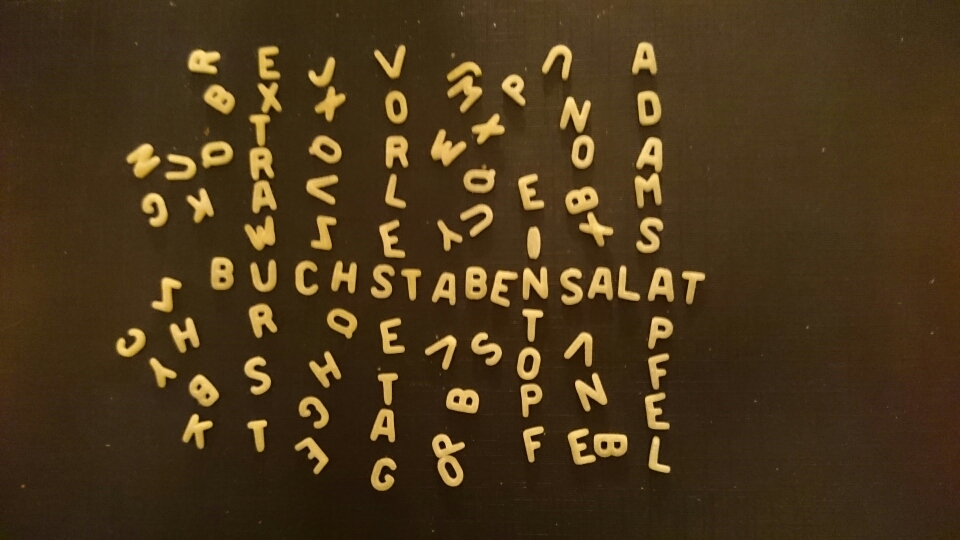 EXTRAWURST
VORLESETAG
EINTOPF
ADAMSAPFEL
BUCHSTABENSALAT